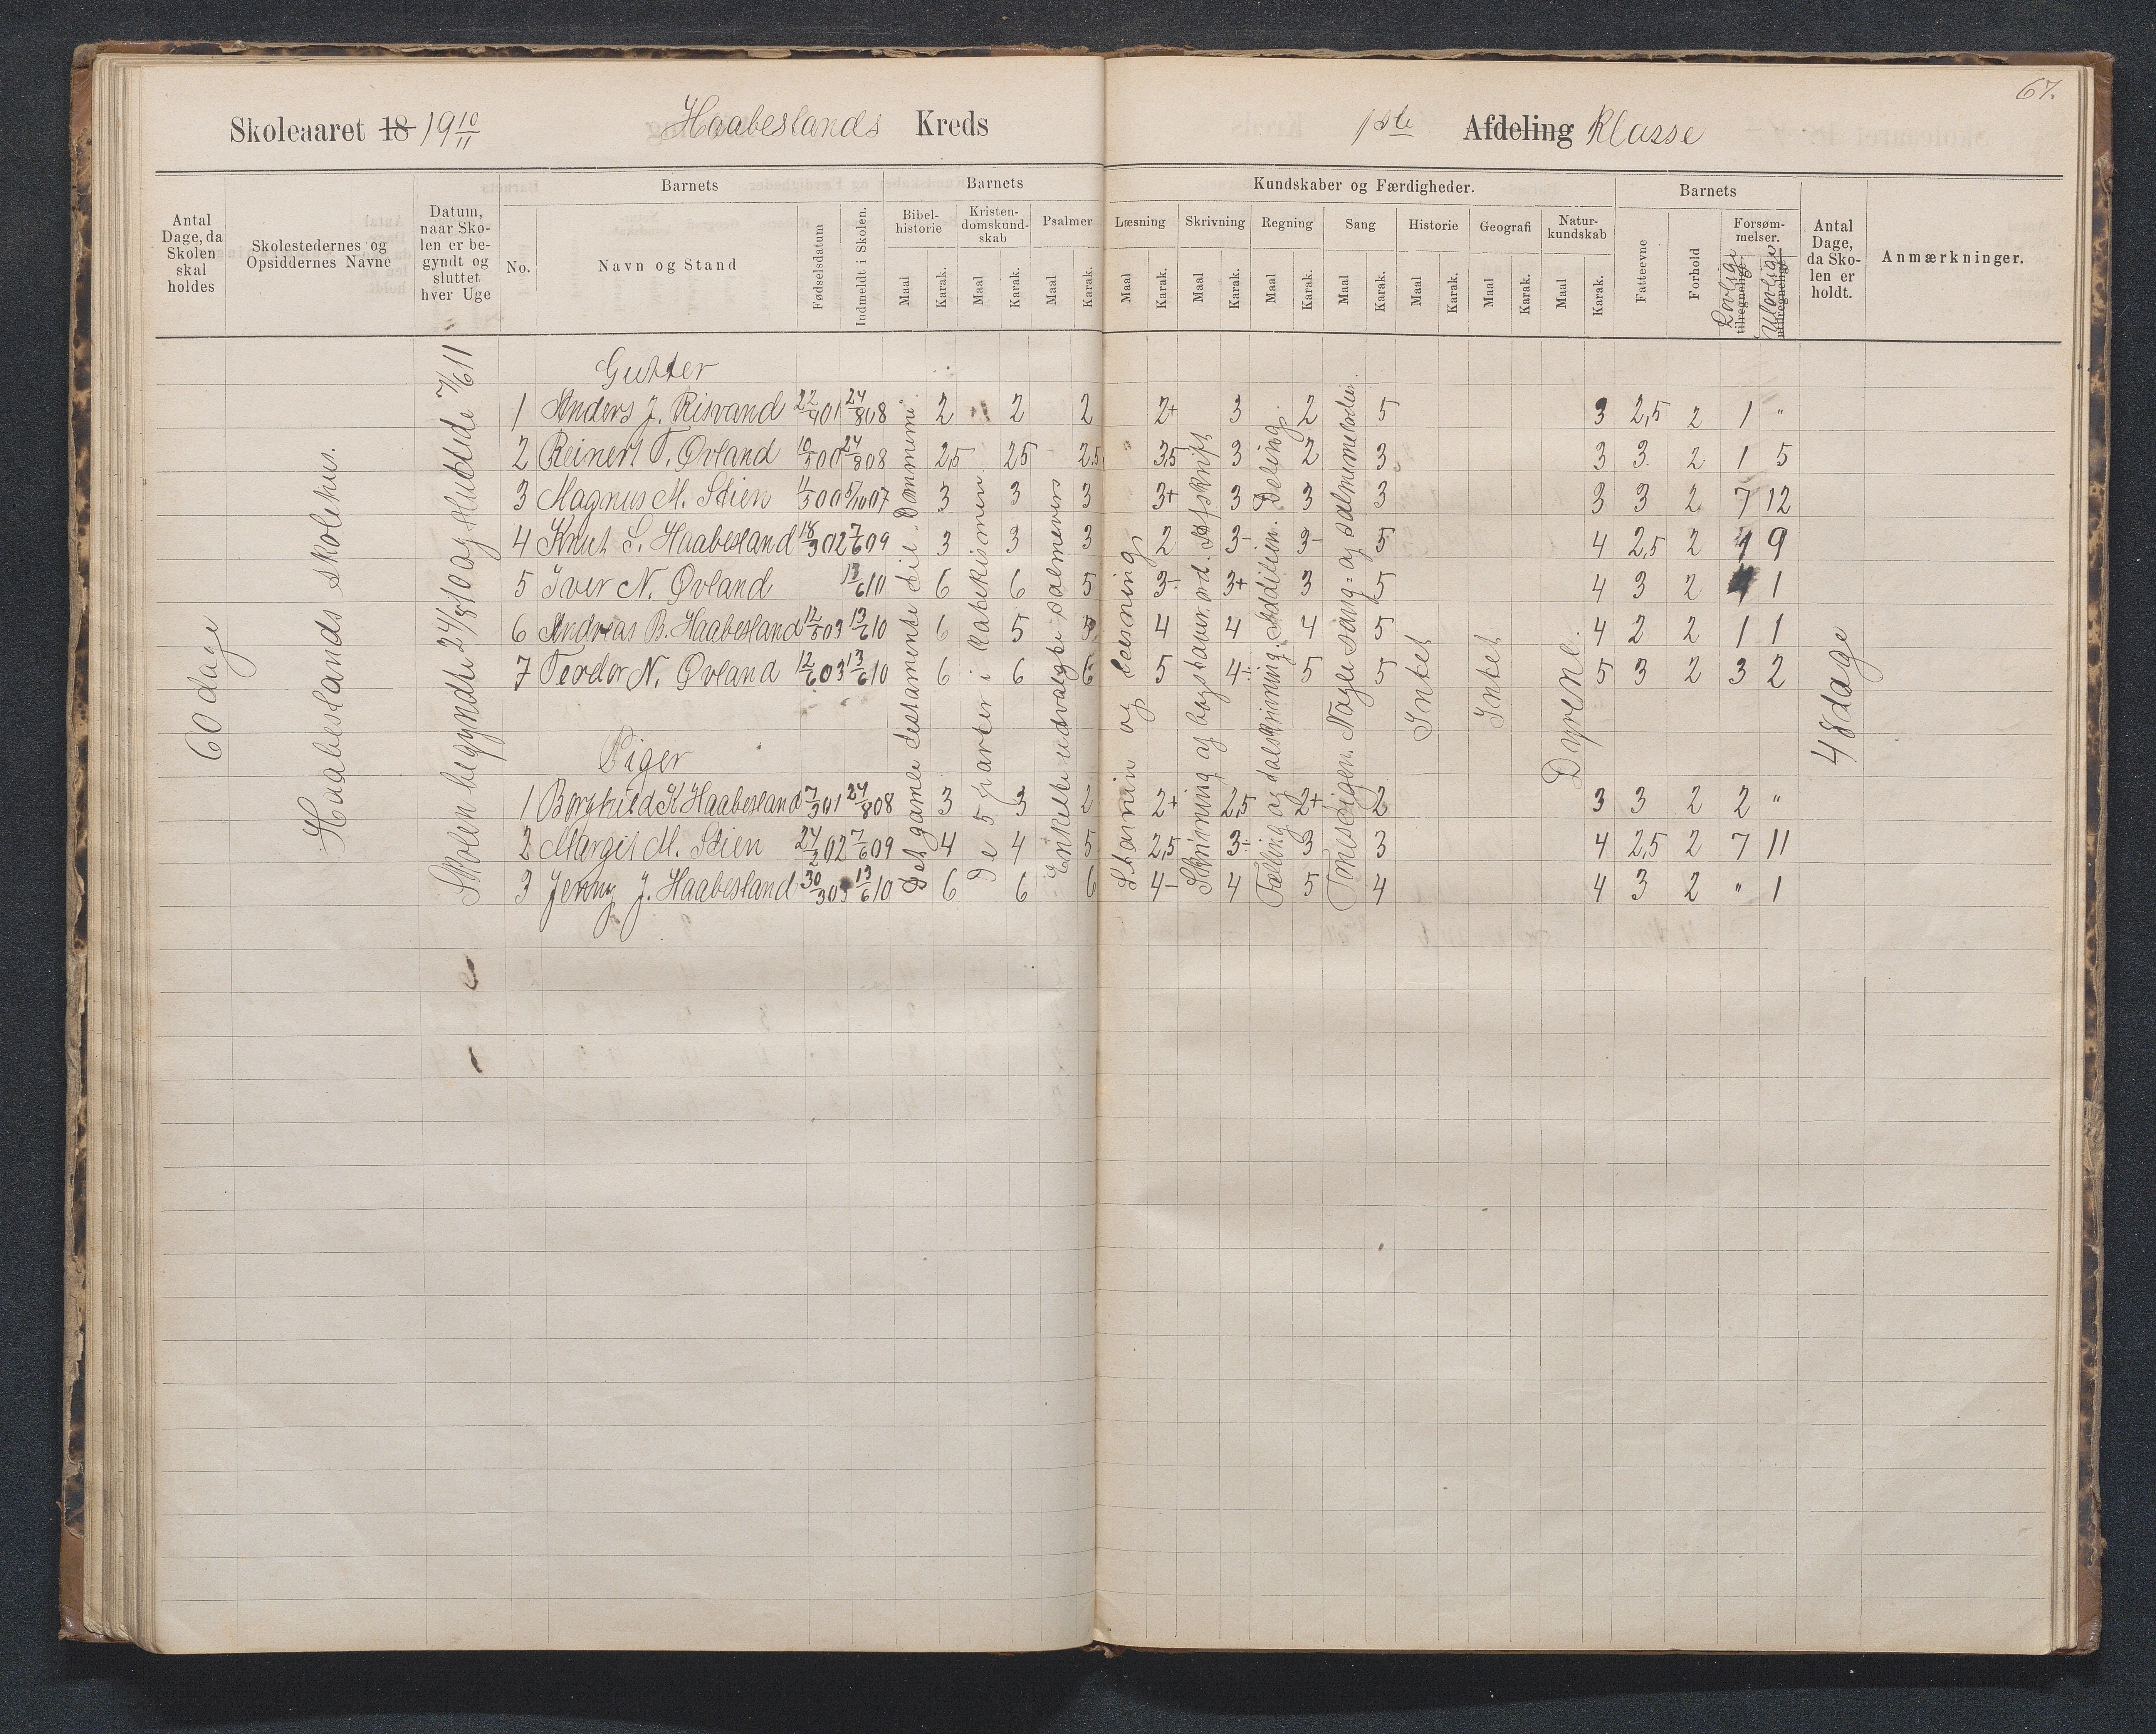 67.
Skoleaaret 18 19 10/11 Haabeslands Kreds 1ste Afdeling Klasse
Antal Dage, da Skolen skal holdes
Skolestedernes og Opsiddernes Navne
Datum, naar Skolen er begyndt og sluttet hver Uge
Barnets
No.
Navn og Stand
Fødselsdatum
Indmeldt i Skolen.
Barnets Kundskaber og Færdigheder.
Bibelhistorie Kristendomskundskab Psalmer Læsning Skrivning Regning Sang Historie Geografi Naturkundskab
Maal Karak. Maal Karak. Maal Karak. Maal Karak. Maal Karak. Maal Karak. Maal Karak. Maal Karak. Maal Karak. Maal Karak.
Barnets
Fatteevne
Forhold
Forsømmelser.
Lovlige tilregnelige
Ulovlige utilregnelige
Antal Dage, da Skolen er holdt.
Anmærkninger.
60 dage
Haabeslands skolehus.
Skolen begyndte 24/8 10 og sluttede 7/6 11
Gutter
1 Anders J. Risvand 22/4 01 24/8 08 2 2 2 2+ 3 2 5 3 2,5 2 1 "
2 Reinert T. Øvland 10/5 00 24/8 08 2,5 2,5 2,5 3,5 3 2 3 3 3 2 1 5
3 Magnus M. Stien 11/5 00 5/10 07 3 3 3 3+ 3 3 3 3 3 2 7 12
4 Knut S. Haabesland 18/3 02 7/6 09 3 3 3 2 3- 3- 5 4 2,5 2 1 9
5 Iver N. Øvland 13/6 10 6 6 5 3- 3+ 3 5 4 3 2 1 1
6 Andreas B. Haabesland 12/5 03 13/6 10 6 5 5 4 4 4 5 4 2 2 1 1
7 Teodor N. Øvland 12/6 03 13/6 10 6 6 6 5 4÷ 5 5 5 3 2 3 2
Piger
1 Borghild K Haabesland 7/3 01 24/8 08 3 3 2 2+ 2,5 2+ 2 3 3 2 2 "
2 Margit M. Stien 24/2 02 7/6 09 4 4 5 2,5 3÷ 3 3 4 2,5 2 7 11
3 Jenny J. Haabesland 30/3 03 13/6 10 6 6 6 4- 4 5 4 4 3 2 " 1
Det gamle testamente til Dommerne.
De 5 parter i katekismen
Enkelte udvalgte salmevers
Stavnin og læsning
Skrivning af bogstaver. ord. Afskrift
Tælling og talskrivning. Addition. Deling.
Tonestigen. Nogle sang= og salmemelodier.
Intet
Intet
Dyrene.
48 dage